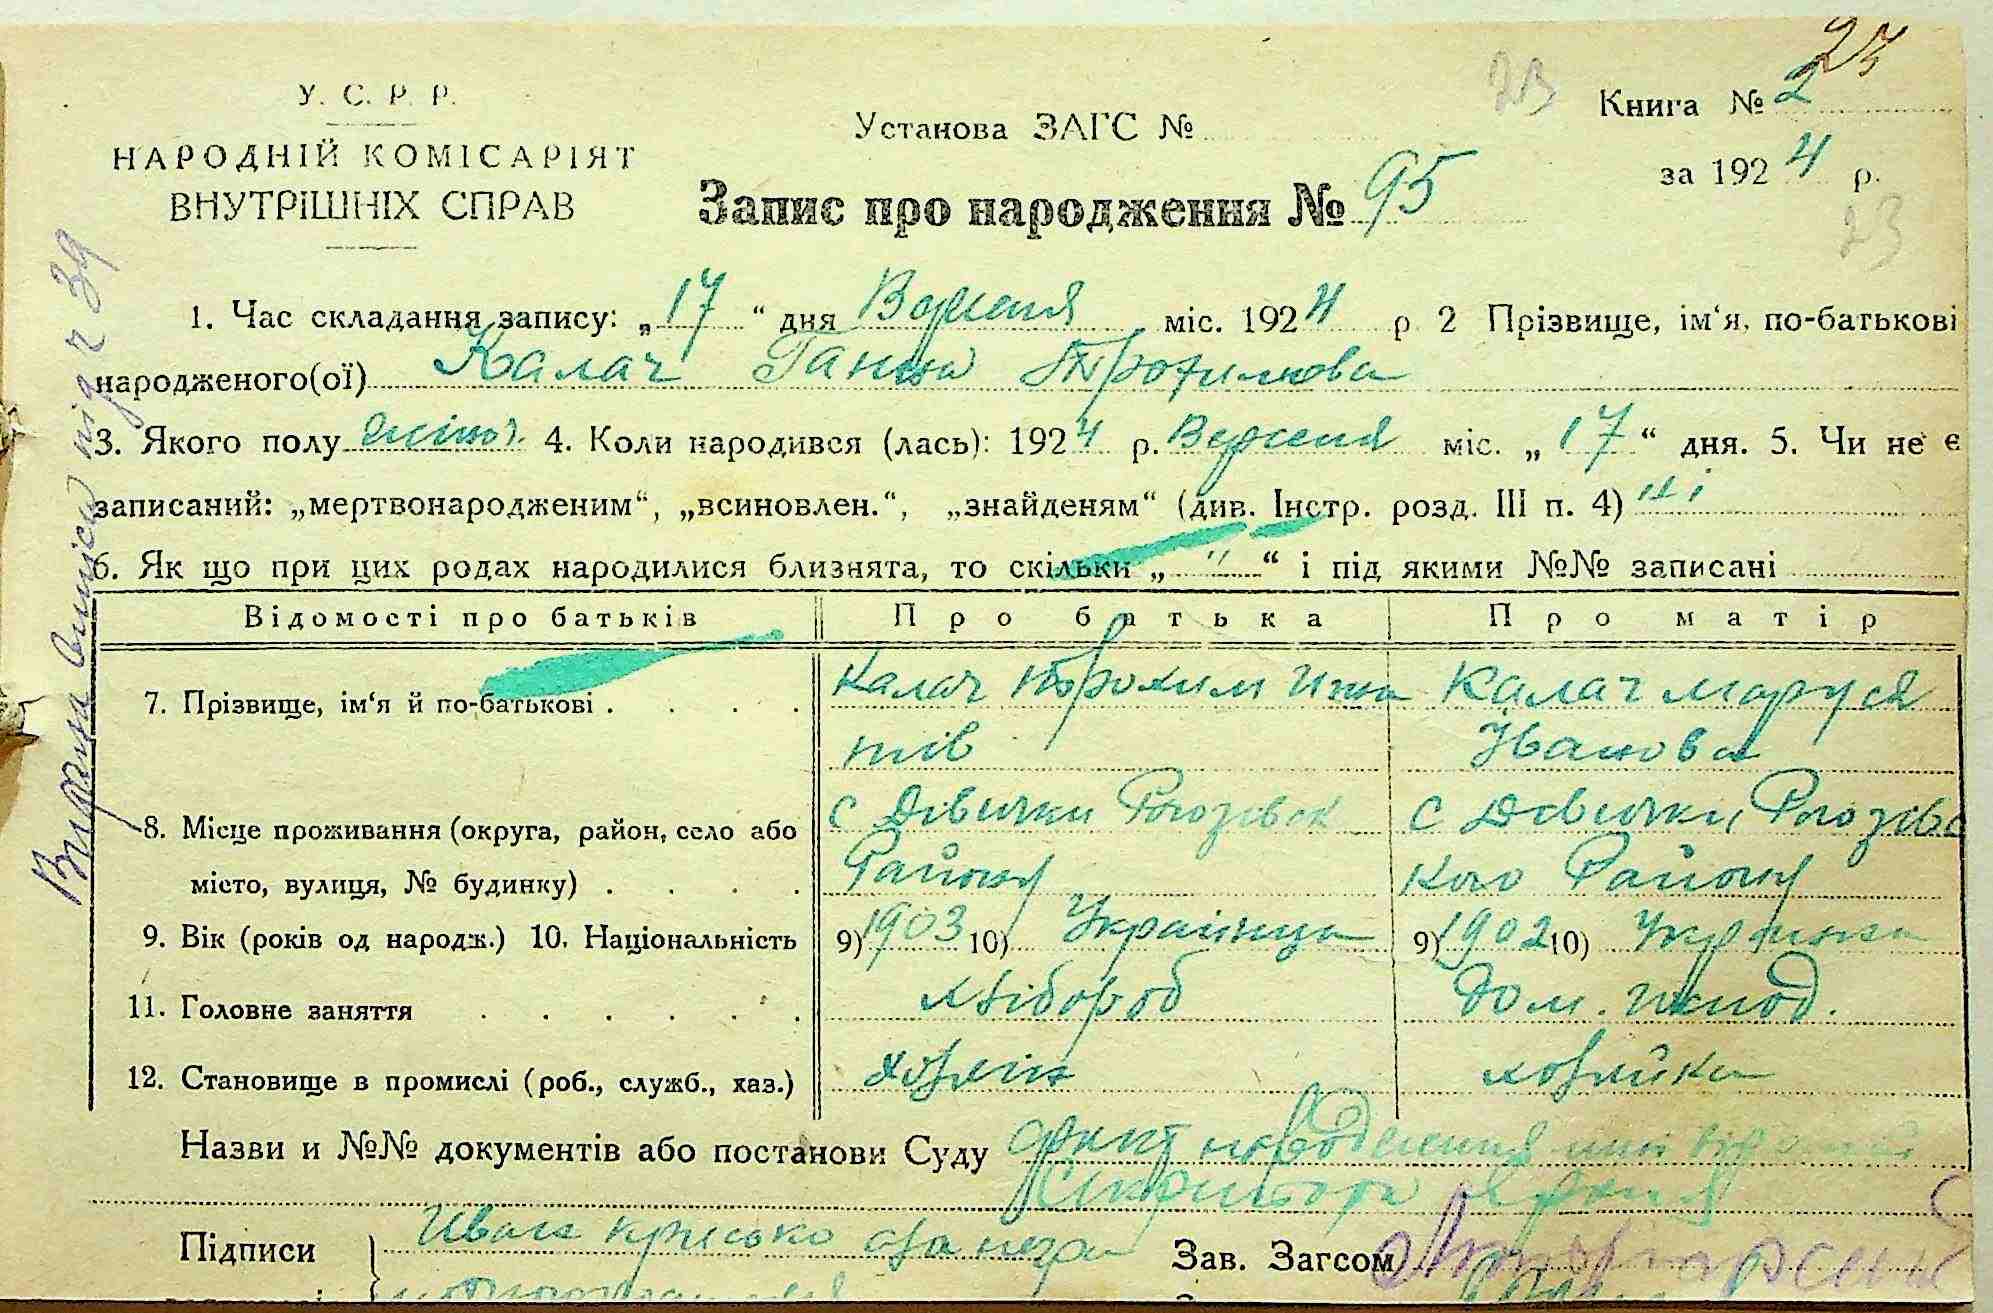 23
23
У. С. Р. Р.
Книга № 2
Установа ЗАГС №
НАРОДНІЙ КОМІСАРІЯТ
за 1924 р.
ВНУТРІШНІХ СПРАВ
Запис про народження № 95
23
1. Час складання запису: „17“ дня Вересня міс. 1924 р 2 Прізвище, ім‘я, по-батькові
народженого(ої) Калач Ганна Трохимова
3. Якого полу жіноч. 4. Коли народився (лась): 1924 р. Вересня міс. „17“ дня. 5. Чи не є
записаний: „мертвонародженим“, „всиновлен.“, „знайденям“ (див. Інстр. розд. III п. 4) ні
6. Як що при цих родах народилися близнята, то скільки „ “ і під якими №№ записані
Відомості про батьків Про батька Про матір
7. Прізвище, ім‘я й по-батькові . . . . Калач Трохим Калач Маруся
Іванова
8. Місце проживання (округа, район, село або с Дівички Рогозівск с Дівички, Рогозівс
місто, вулиця, № будинку) . . . . Району кого Району
9. Вік (років од народж.) 10. Національність 9) 1903 10) Українца 9) 1902 10) Українка
11. Головне заняття . . . . . . хлібороб Дом. господ.
12. Становище в промислі (роб., служб., хаз.) хозяїн хозяйка
Назви и №№ документів або постанови Суду факт народження
Підписи Зав. Загсом
Видана виписка під ч 39